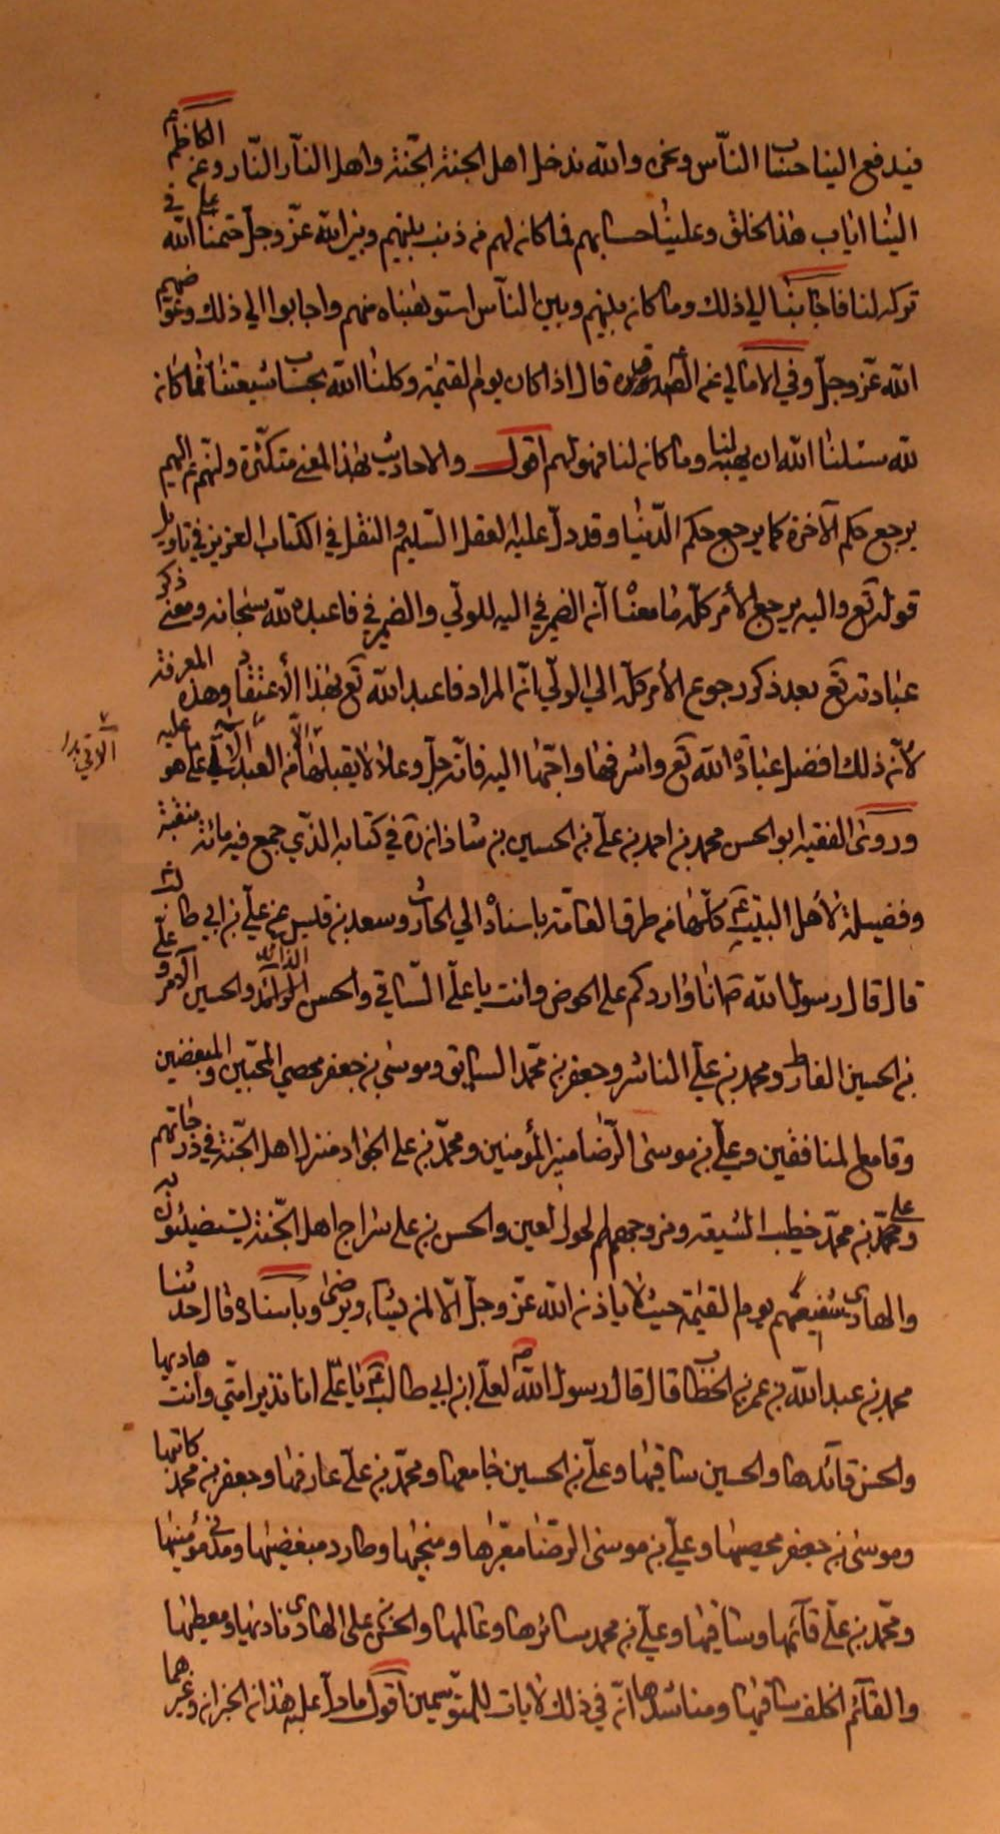 فيدفع الينا حساب الناس ونحن والله ندخل اهل الجنة الجنة واهل النار النار وعن الكاظم ع
الينا اياب هذا الخلق وعلينا حسابهم فما كان لهم من ذنب بينهم وبين الله عز وجل حتمنا على الله في
تركه لنا فاجابنا الى ذلك وما كان بينهم وبين الناس استوهبناه منهم واجابوا الى ذلك وعوضهم
الله عز وجل وفي الامالي عن الصادق ع قال اذا كان يوم القيمة وكلنا الله بحساب شيعتنا فما كان
لله سئلنا الله ان يهبه لنا وما كان لنا فهو لهم اقول والاحاديث بهذا المعنى متكثرة وانهم ع اليهم
يرجع حكم الآخرة كما يرجع حكم الدنيا وقد دل عليه العقل السليم والنقل في الكتاب العزيز في تاويل
قوله تع واليه يرجع الأمر كله ما معناه ان الضمير في اليه للولي والضمير في فاعبده لله سبحانه ومعنى ذكر
عبادته تع بعد ذكر رجوع الأمر كله الى الولي ان المراد فاعبد الله تع بهذا الأعتقاد وهذه المعرفة
لأن ذلك افضل عبادة الله تع واشرفها واحبها اليه فانه جل وعلا لا يقبلها من العبد الا على ما هو عليه
وروى الفقيه ابو الحسن محمد بن احمد بن علي بن الحسين بن شاذان ره في كتابه الذي جمع فيه مائة منقبة
وفضيلة لأهل البيت ع كلها من طرق العامة باسناده الى الحارث وسعد بن قيس عن علي بن ابي طالب ع
قال قال رسول الله ص انا واردكم على الحوض وانت يا علي الساقي والحسن الذائد والحسين الآمر وعلي
بن الحسين الفارط ومحمد بن علي الناشر وجعفر بن محمد السابق وموسى بن جعفر محصي المحبين والمبغضين
وقامع المنافقين وعلي بن موسى الرضا مزين المؤمنين ومحمد بن علي الجواد منزل اهل الجنة في درجاتهم
وعلي بن محمد خطيب الشيعة ومزوجهم الحور العين والحسن بن علي سراج اهل الجنة يستضيئون به
والهادي شفيعهم يوم القيمة حيث لا ياذن الله عز وجل الا لمن يشاء ويرضى وباسناده قال حدثنا
محمد بن عبد الله بن عمر بن الخطاب قال قال رسول الله ص لعلي ابن ابي طالب ع يا علي انا نذير امتي وانت هاديها
والحسن قائدها والحسين ساقيها وعلي بن الحسين جامعها ومحمد بن علي عارفها وجعفر بن محمد كاتبها
وموسى بن جعفر محصيها وعلي بن موسى الرضا معبرها ومنجيها وطارد مبغضيها ومدني مؤمنيها
ومحمد بن علي قائمها وساقيها وعلي بن محمد سائرها وعالمها والحسن بن علي الهادي ناديها ومعطيها
والقائم الخلف ساقيها ومناشدها ان في ذلك لآيات للمتوسمين اقول ما دل عليه هذان الخبران وغيرهما